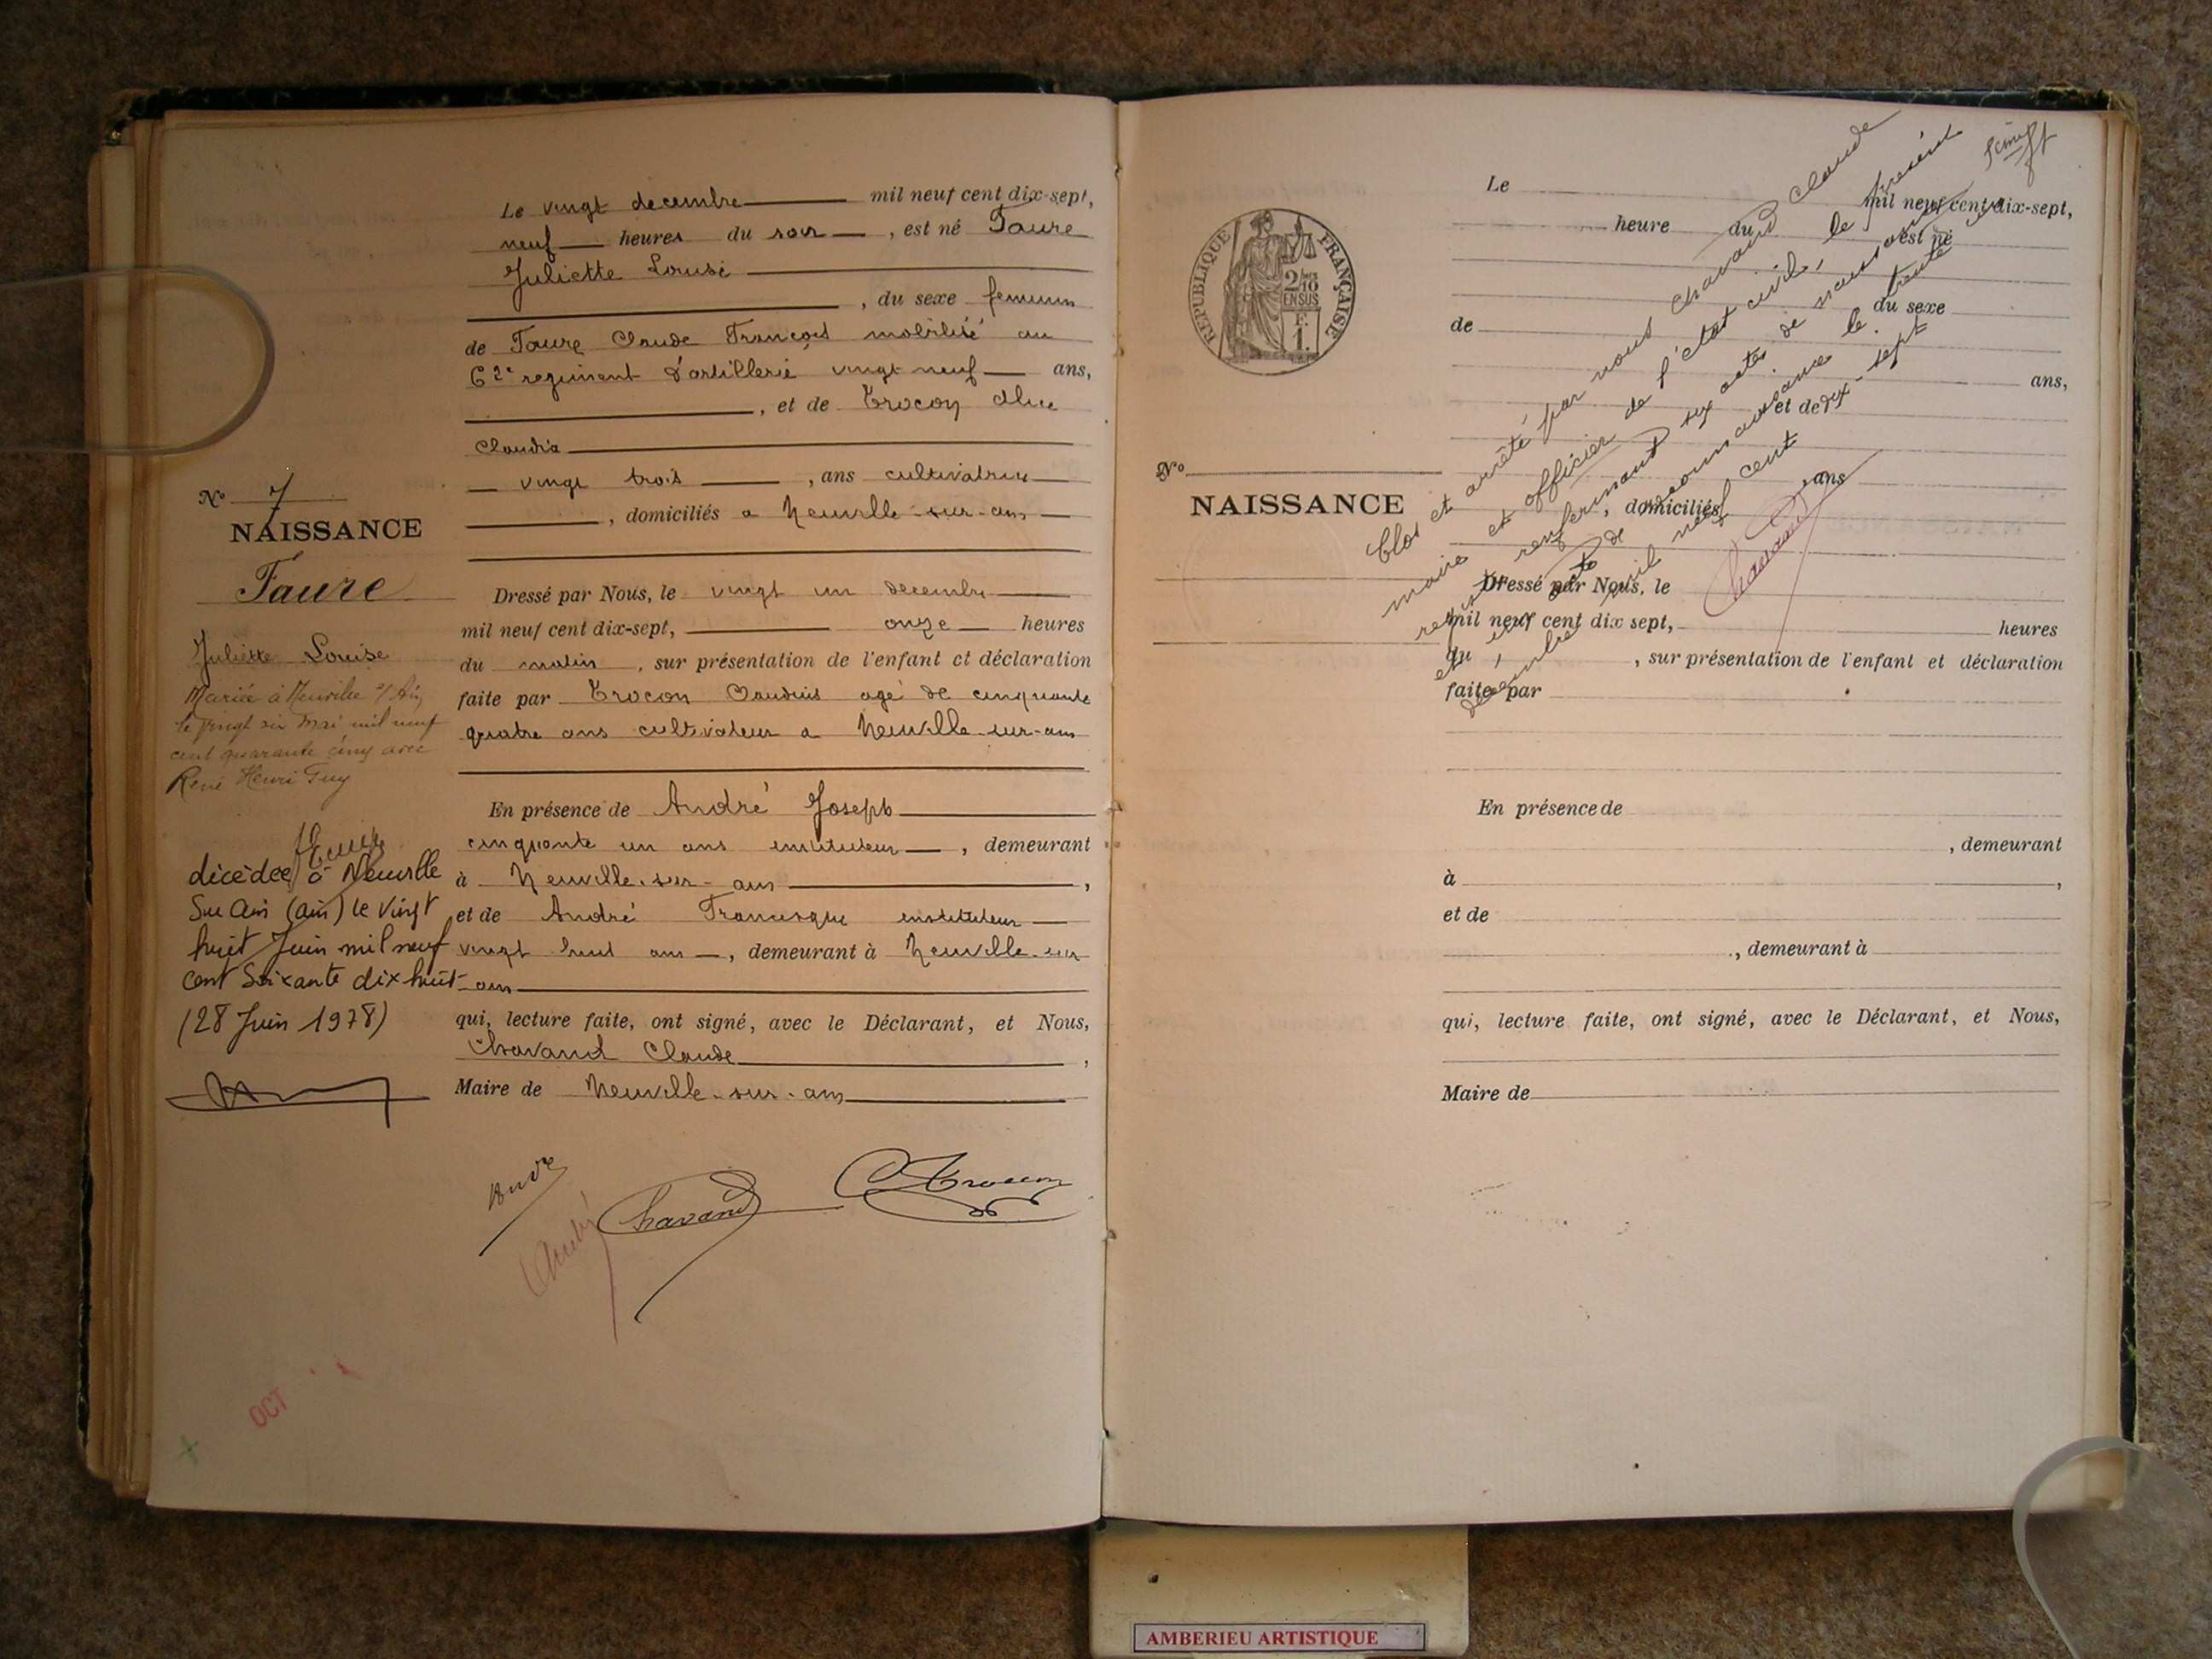 Le vingt decembre mil neuf cent dix-sept,
neuf heures du soir, est né Faure
Juliette Louise
, du sexe feminin
de Faure Claude François mobilisé au
62e regiment d'artillerie vingt neuf ans,
, et de Trocon Alice
Claudia
vingt trois , ans cultivatrice
, domiciliés a Neuville-sur-ain
N° 7
NAISSANCE
Faure
Juliette Louise
Mariée à Neuville s/ Ain
le vingt six Mai mil neuf
cent quarante cinq avec
René Henri
décèdée à Neuville
Sur Ain (Ain) le vingt
huit Juin mil neuf
cent Soixante dix huit
(28 Juin 1978)
Dressé par Nous, le vingt un decembre
mil neuf cent dix-sept, onze heures
du matin, sur présentation de l'enfant et déclaration
faite par Trocon Claudius agé de cinquante
quatre ans cultivateur a Neuville-sur-ain
En présence de André Joseph
cinquante un ans instituteur, demeurant
à Neuville-sur-ain,
et de André Francisque instituteur
vingt huit ans, demeurant à Neuville-sur
-ain
qui, lecture faite, ont signé, avec le Déclarant, et Nous,
Chavand Claude,
Maire de Neuville-sur-ain
André
Chavand
Trocon
OCT
REPUBLIQUE FRANÇAISE
2/10
EN SUS
F.
1.
N°
NAISSANCE
Le
mil neuf cent dix-sept,
heure du
est né
du sexe
de
ans,
et de
, ans
, domiciliés
Dressé par Nous, le
mil neuf cent dix sept, heures
du , sur présentation de l'enfant et déclaration
faite par
En présence de
, demeurant
à ,
et de
, demeurant à
qui, lecture faite, ont signé, avec le Déclarant, et Nous,
Maire de
Clos et arrêté par nous Chavand Claude
maire et officier de l'état civil, le présent
registre renfermant six actes de naissance
et un acte de reconnaissance le trente
decembre mil neuf cent dix-sept
Chavand
AMBERIEU ARTISTIQUE